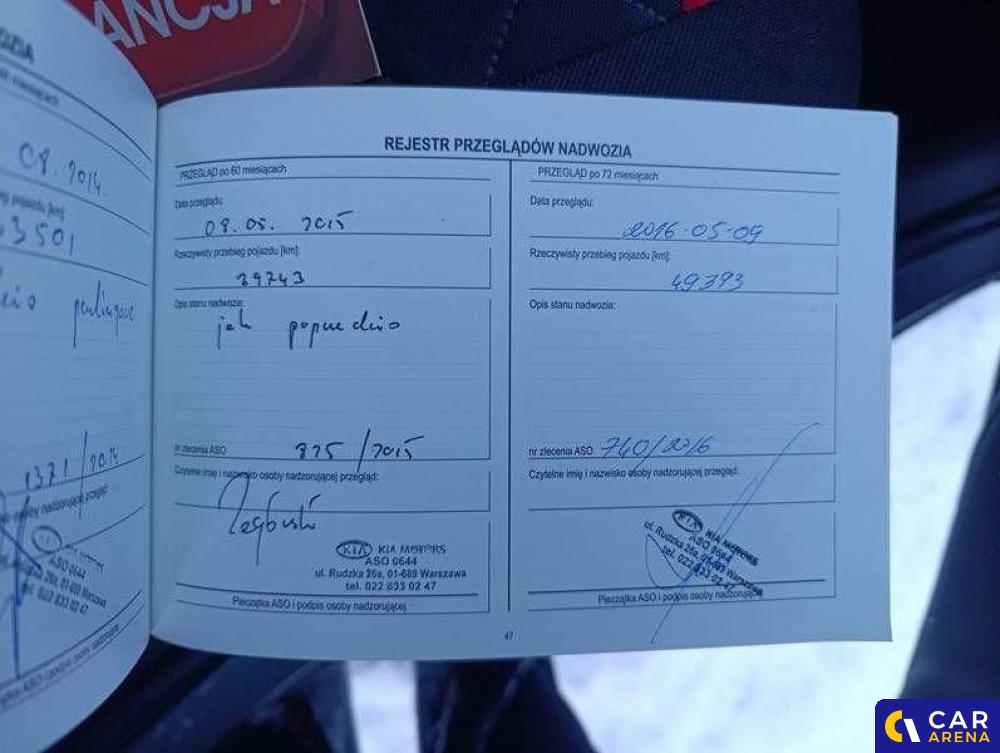 ANCJA
OZIA
miesiącach
08.2014.
pojazdu [km]
33501
1371/2014
ASO 0644
26a, 01-689 Warszawa
tel. 022 833 02 47
REJESTR PRZEGLĄDÓW NADWOZIA
PRZEGLĄD po 60 miesiącach
Data przeglądu:
08.05. 2015
Rzeczywisty przebieg pojazdu [km]:
39743
Opis stanu nadwozia:
jak poprzednio
nr zlecenia ASO 825/2015
Czytelne imię i nazwisko osoby nadzorującej przegląd:
KIA KIA MOTORS
ASO 0644
ul. Rudzka 26a, 01-689 Warszawa
tel. 022 833 02 47
Pieczątka ASO i podpis osoby nadzorującej
PRZEGLĄD po 72 miesiącach
Data przeglądu:
2016-05-09
Rzeczywisty przebieg pojazdu [km]:
49393
Opis stanu nadwozia:
nr zlecenia ASO 740/2016
Czytelne imię i nazwisko osoby nadzorującej przegląd:
KIA KIA MOTORS
ASO 0644
ul. Rudzka 26a, 01-689 Warszawa
tel. 022 833 02 47
Pieczątka ASO i podpis osoby nadzorującej
47
CAR
ARENA